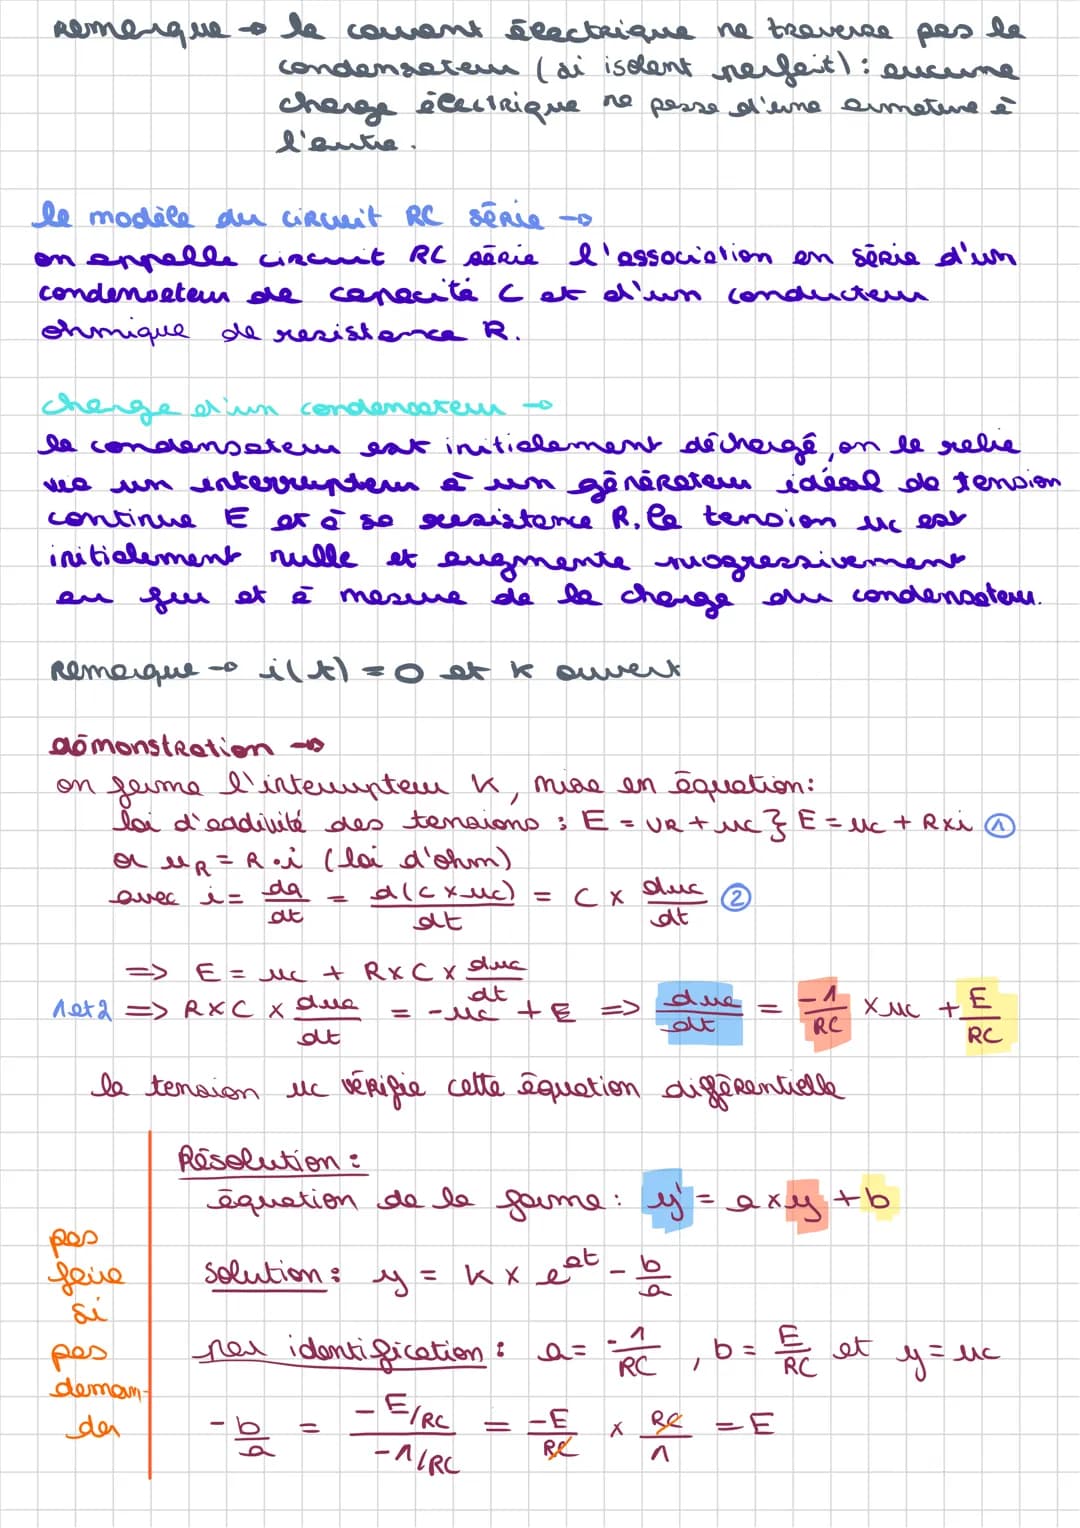 Remarque → le courant électrique ne traverse pas le
condensateur (si isolant parfait) : aucune
charge électrique ne passe d'une armature à
l'autre.
le modèle du circuit RC série →
on appelle circuit RC série l'association en série d'un
condensateur de capacité C et d'un conducteur
ohmique de resistance R.
charge d'un condensateur →
le condensateur est initialement déchargé, on le relie
via un interrupteur à un générateur idéal de tension
continue E et à sa resistance R. la tension uc est
initialement nulle et augmente progressivement
au fur et à mesure de la charge du condensateur.
Remarque → i(t) = 0 et K ouvert
démonstration →
on ferme l'interrupteur K, mise en équation:
loi d'addivité des tensions : E = UR + uc } E = uc + Rxi ①
or uR = R · i (loi d'ohm)
avec i = dq/dt = d(C × uc)/dt = C × duc/dt ②
=> E = uc + R × C × duc/dt
1 et 2 => R × C × duc/dt = -uc + E => duc/dt = -1/RC × uc + E/RC
la tension uc vérifie cette équation différentielle
Résolution :
équation de la forme : y' = a × y + b
pas
faire
si
pas
deman-
der
solution : y = K × e^at - b/a
par identification : a = -1/RC , b = E/RC et y = uc
-b/a = -E/RC / -1/RC = -E/RC × RC/1 = E